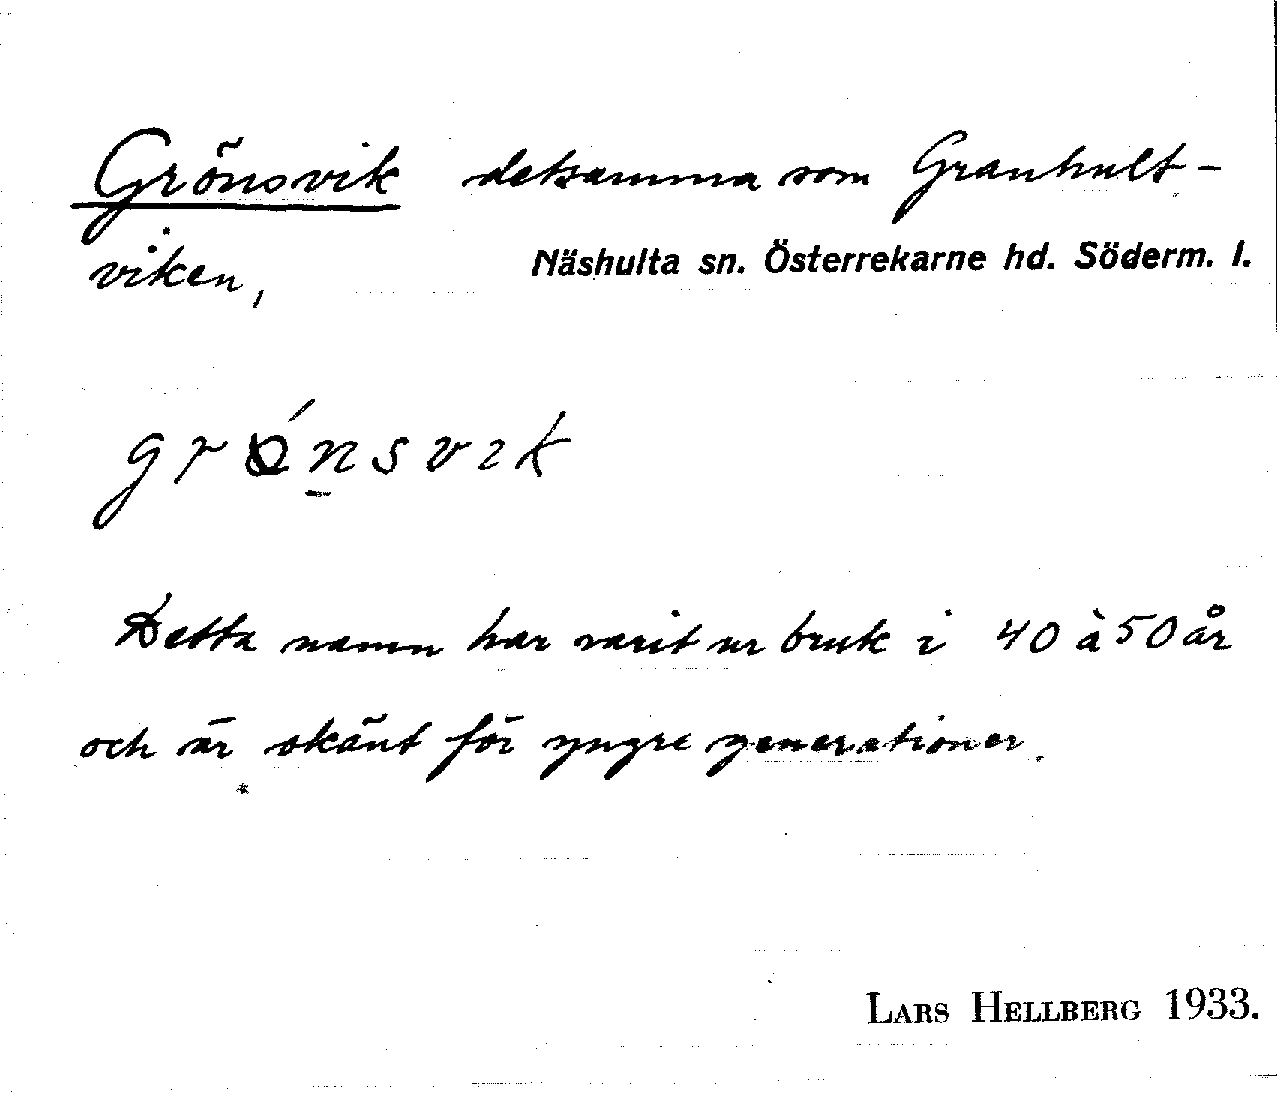 Grönsvik detsamma som Granhult-
viken,
Näshulta sn. Österrekarne hd. Söderm. l.
Detta namn har varit ur bruk i 40 à 50 år
och är okänt för yngre generationer.
LARS HELLBERG 1933.